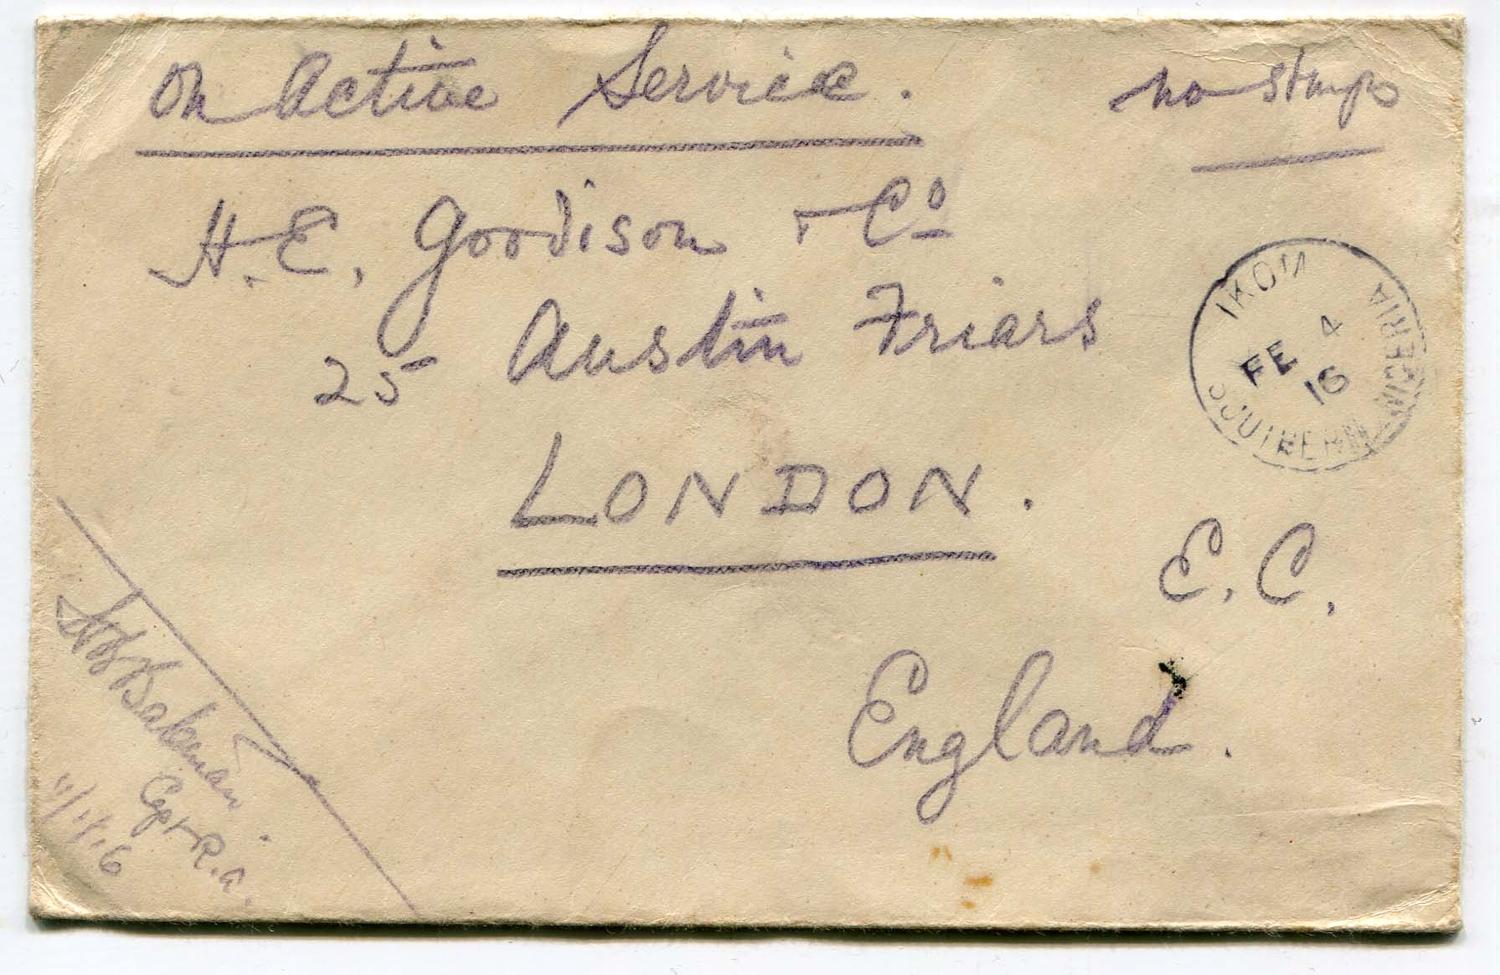 On Active Service.
no stamps
H. E. Goodison & Co
25 Austin Friars
LONDON.
E. C.
England.
IKOM
FE 4
16
SOUTHERN NIGERIA
Capt R.A.